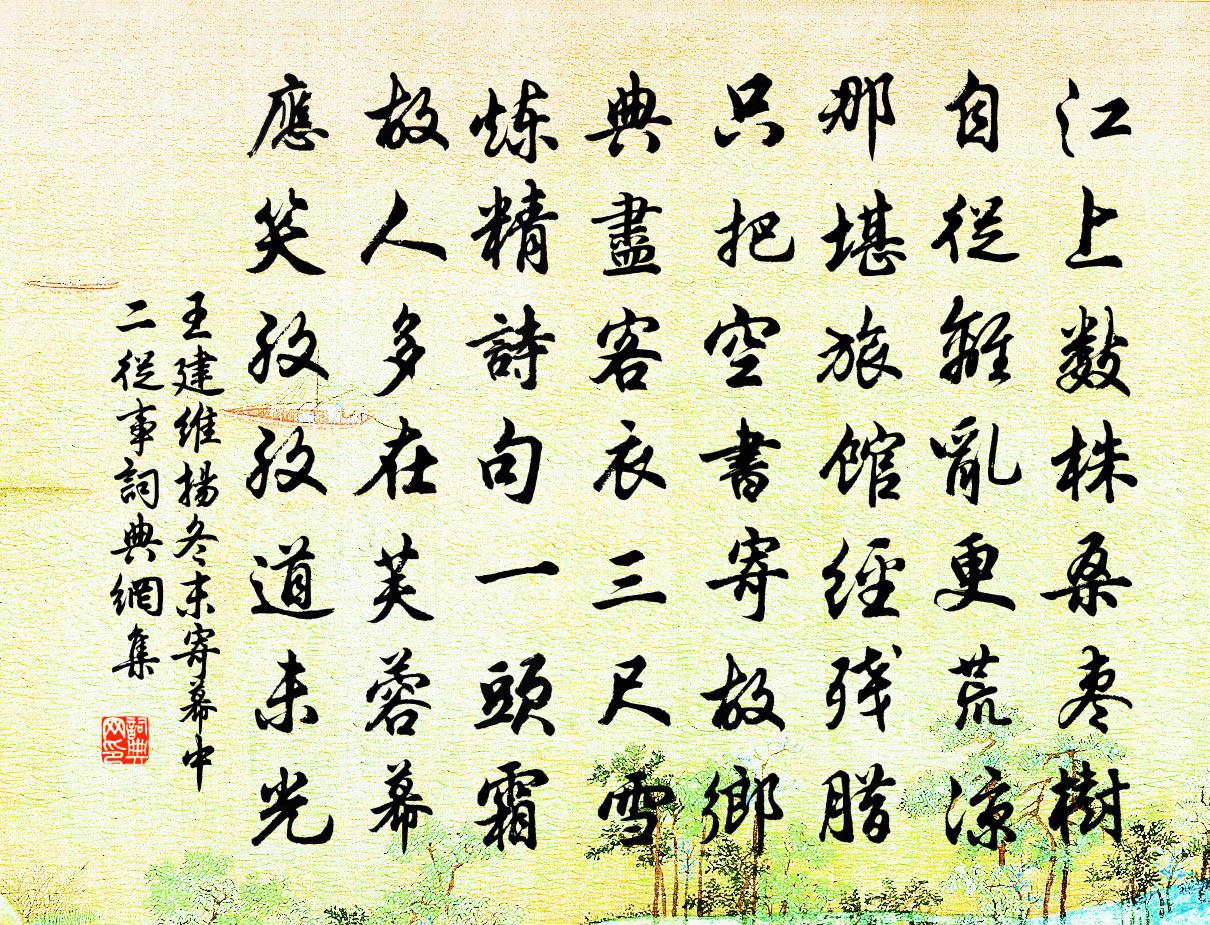 江上数株桑枣樹
自從離亂更荒涼
那堪旅館經残腊
只把空書寄故鄉
典盡客衣三尺雪
炼精詩句一頭霜
故人多在芙蓉幕
應笑孜孜道未光
王建維揚冬末寄幕中
二從事詞典網集
詞典网印